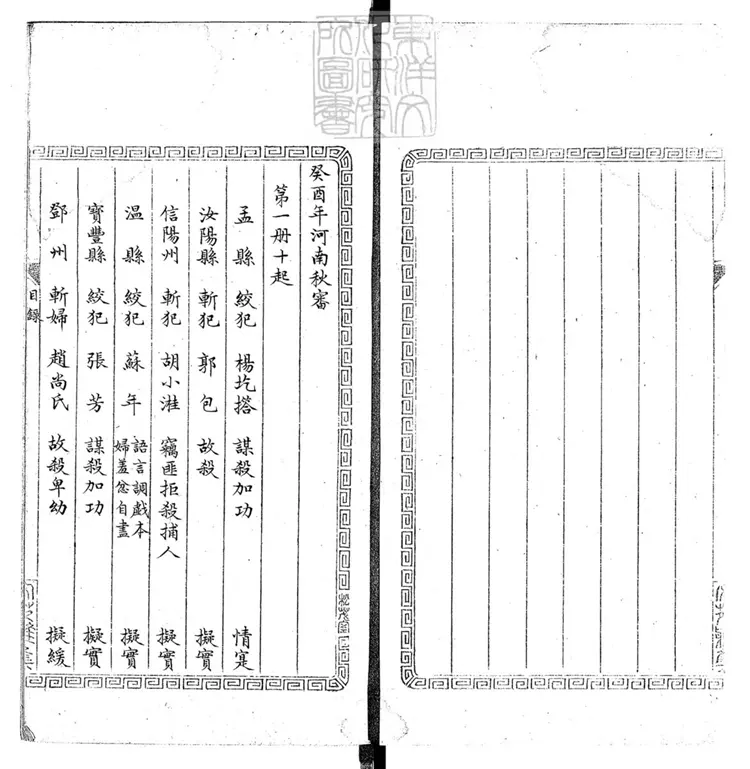 東洋文
化研究
所圖書
癸酉年河南秋審
第一册十起
孟縣 絞犯 楊圪撘 謀殺加功 情寔
汝陽縣 斬犯 郭包 故殺 擬實
信陽州 斬犯 胡小淮 竊匪拒殺捕人 擬實
温縣 絞犯 蘇年 語言調戲本婦羞忿自盡 擬實
寶豐縣 絞犯 張芳 謀殺加功 擬實
鄧州 斬婦 趙尚氏 故殺卑幼 擬緩
目錄